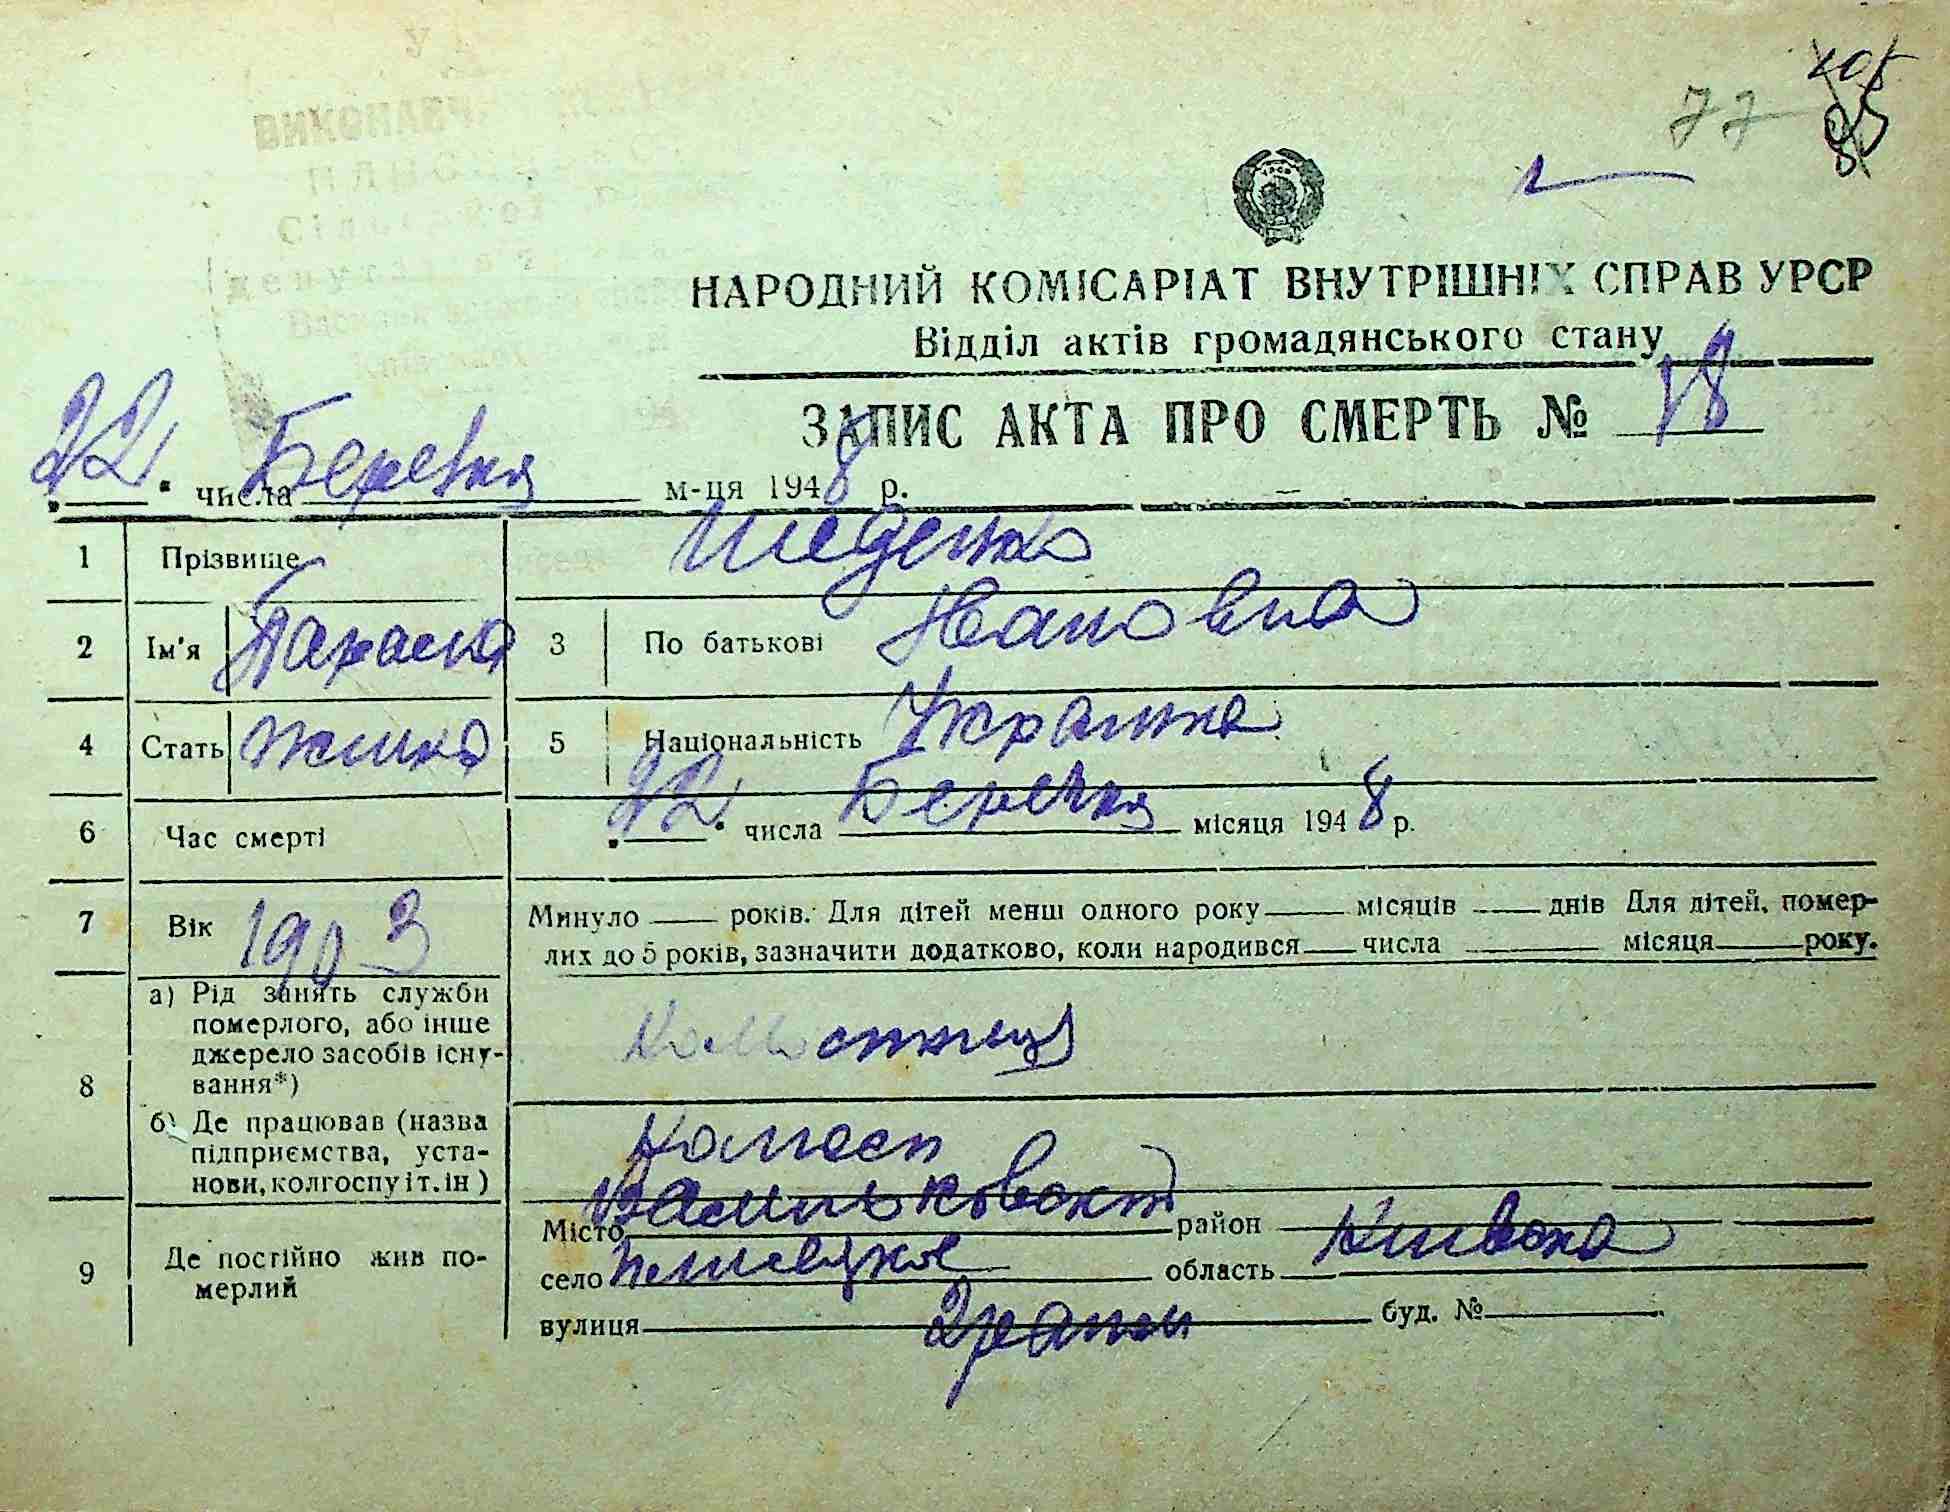 77
НАРОДНИЙ КОМІСАРІАТ ВНУТРІШНІХ СПРАВ УРСР
Відділ актів громадянського стану
ЗАПИС АКТА ПРО СМЕРТЬ № 18
„22" числа Березня м-ця 1948 р.
1 Прізвище Шеденко
2 Ім'я Параска 3 По батькові
4 Стать жінка 5 Національність Українка
6 Час смерті „22" числа Березня місяця 1948 р.
7 Вік 1903 Минуло років. Для дітей менш одного року місяців днів Для дітей, помер-
лих до 5 років, зазначити додатково, коли народився числа місяця року.
8 а) Рід занять служби
померлого, або інше
джерело засобів існу-
вання*)
Колгоспниця
б) Де працював (назва
підприємства, уста-
нови, колгоспу і т. ін)
Колгосп
9 Де постійно жив по-
мерлий
Місто Васильковский район
село Плисецкое область Киівска
вулиця буд. №